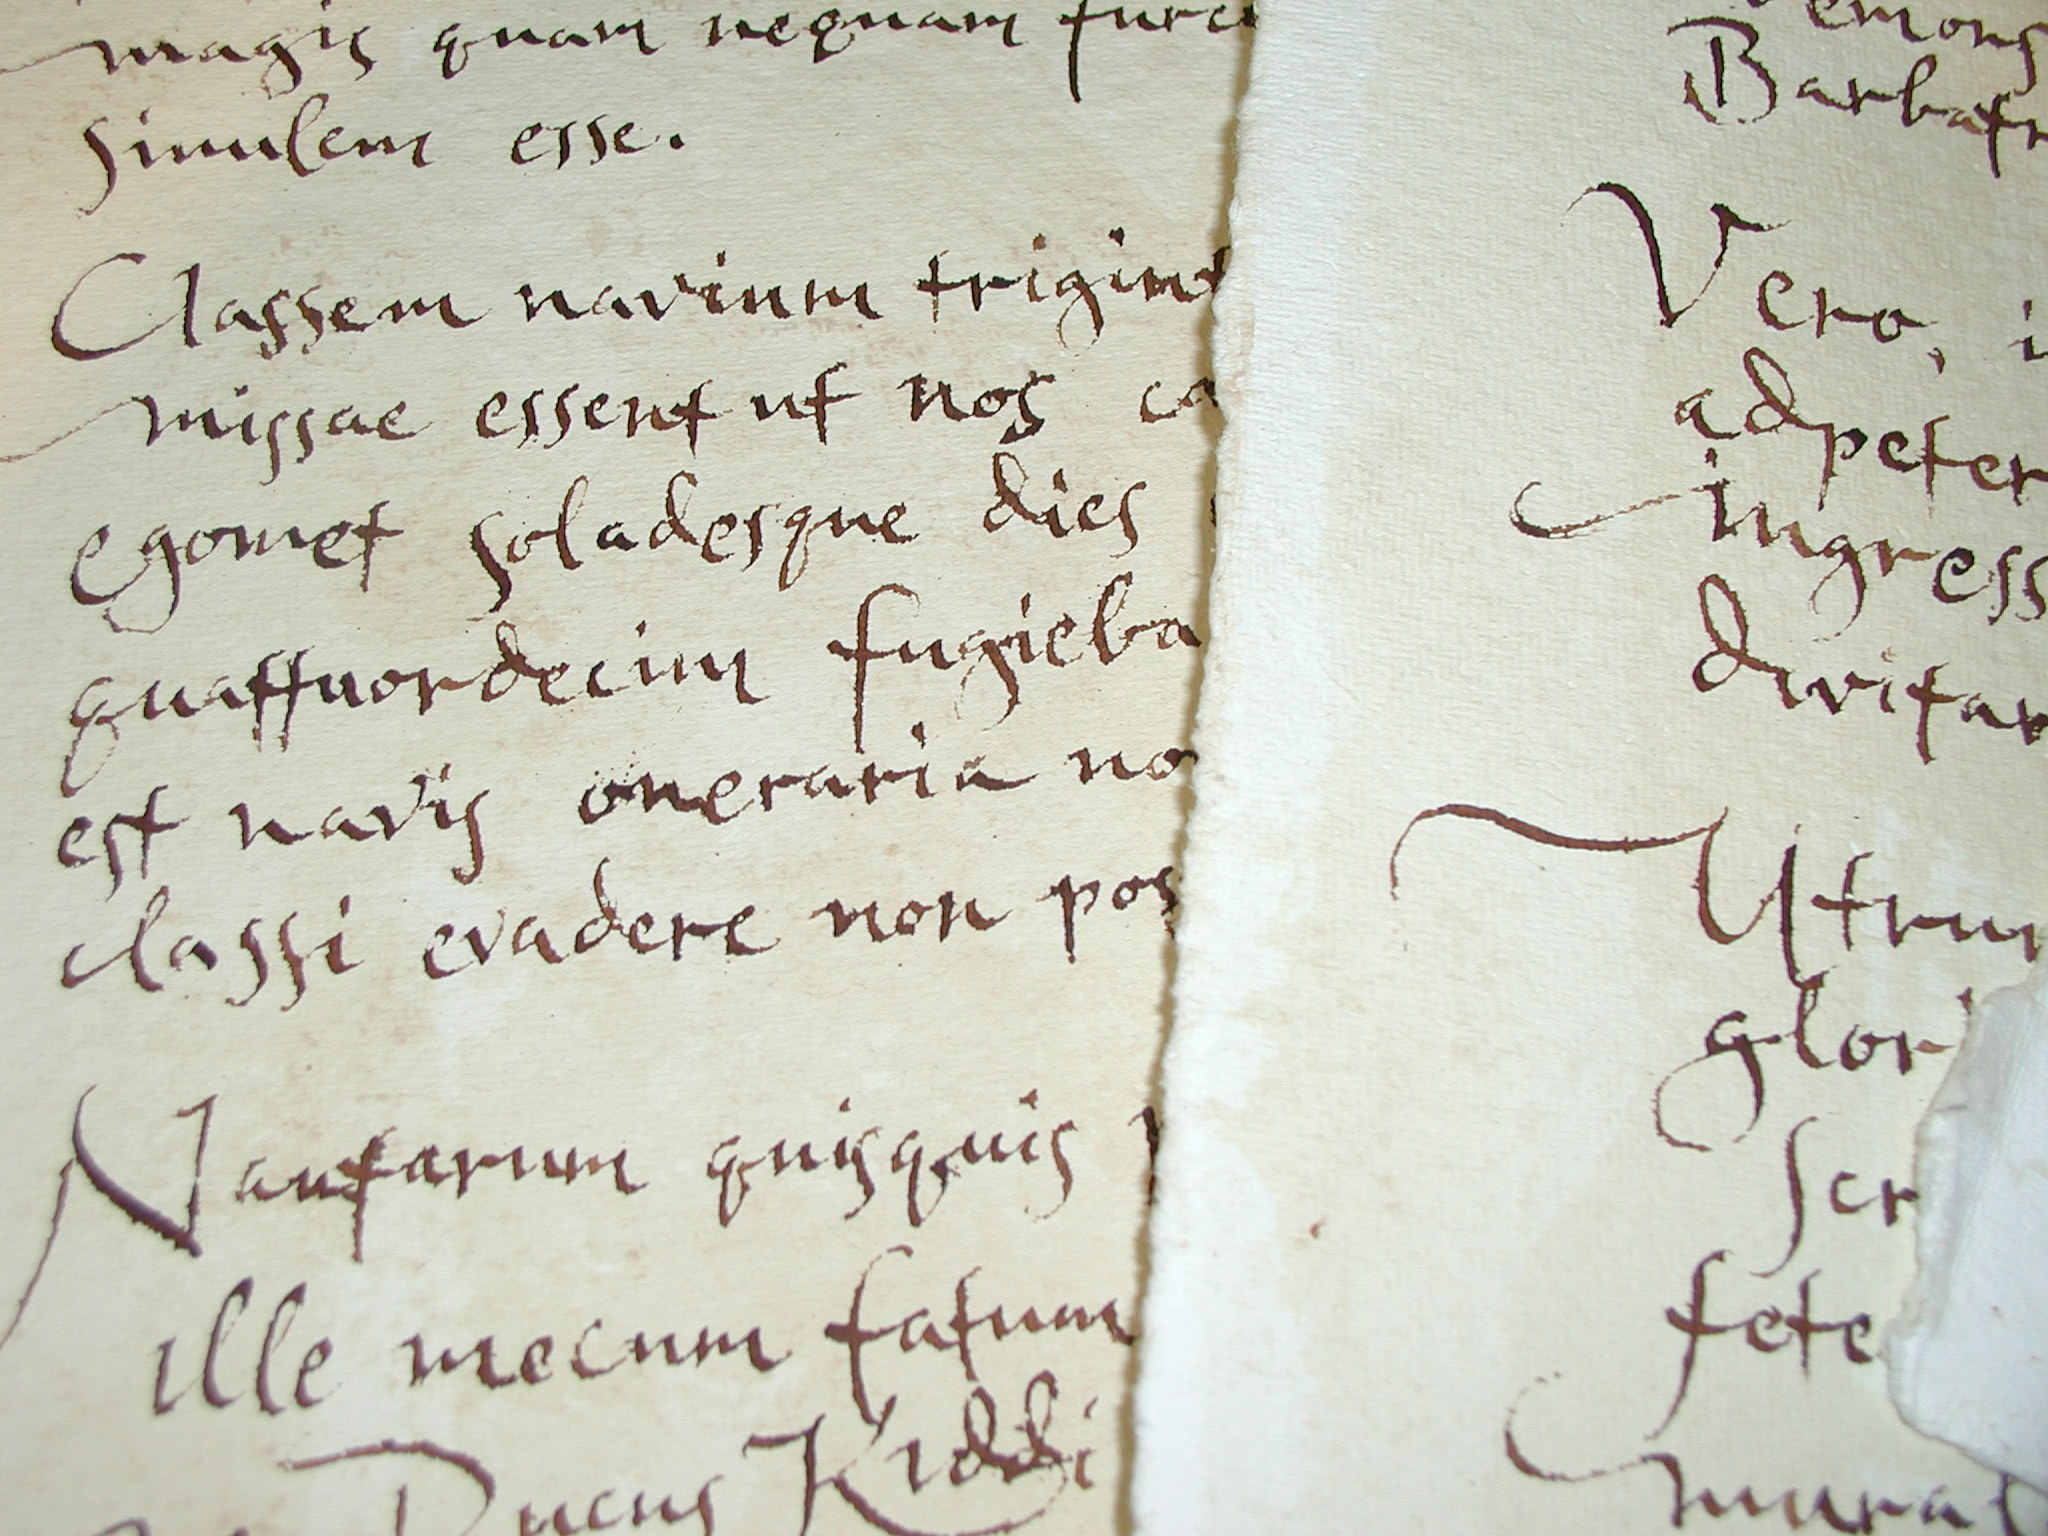 magis quam nequam furci
simulem esse.
Classem navium trigint
missae essent ut nos ca
egomet soladesque dies
quattuordecim fugieba
est navis oneraria no
classi evadere non pos
Nautarum quisquis
ille mecum fatum
Ducus Kiddi
emons
Barbatr
Vero, i
adpeter
ingress
divitar
Utrum
glori
scr
fete
mural